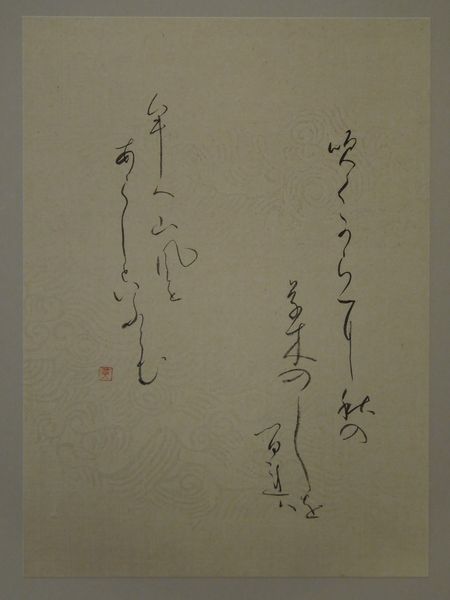 吹くからに秋の
草木のしを
るれは
牟へ山風を
あらしといふらむ